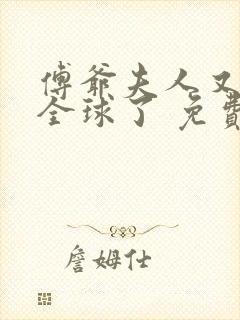 傅爺夫人又
全球了 免費
詹姆仕